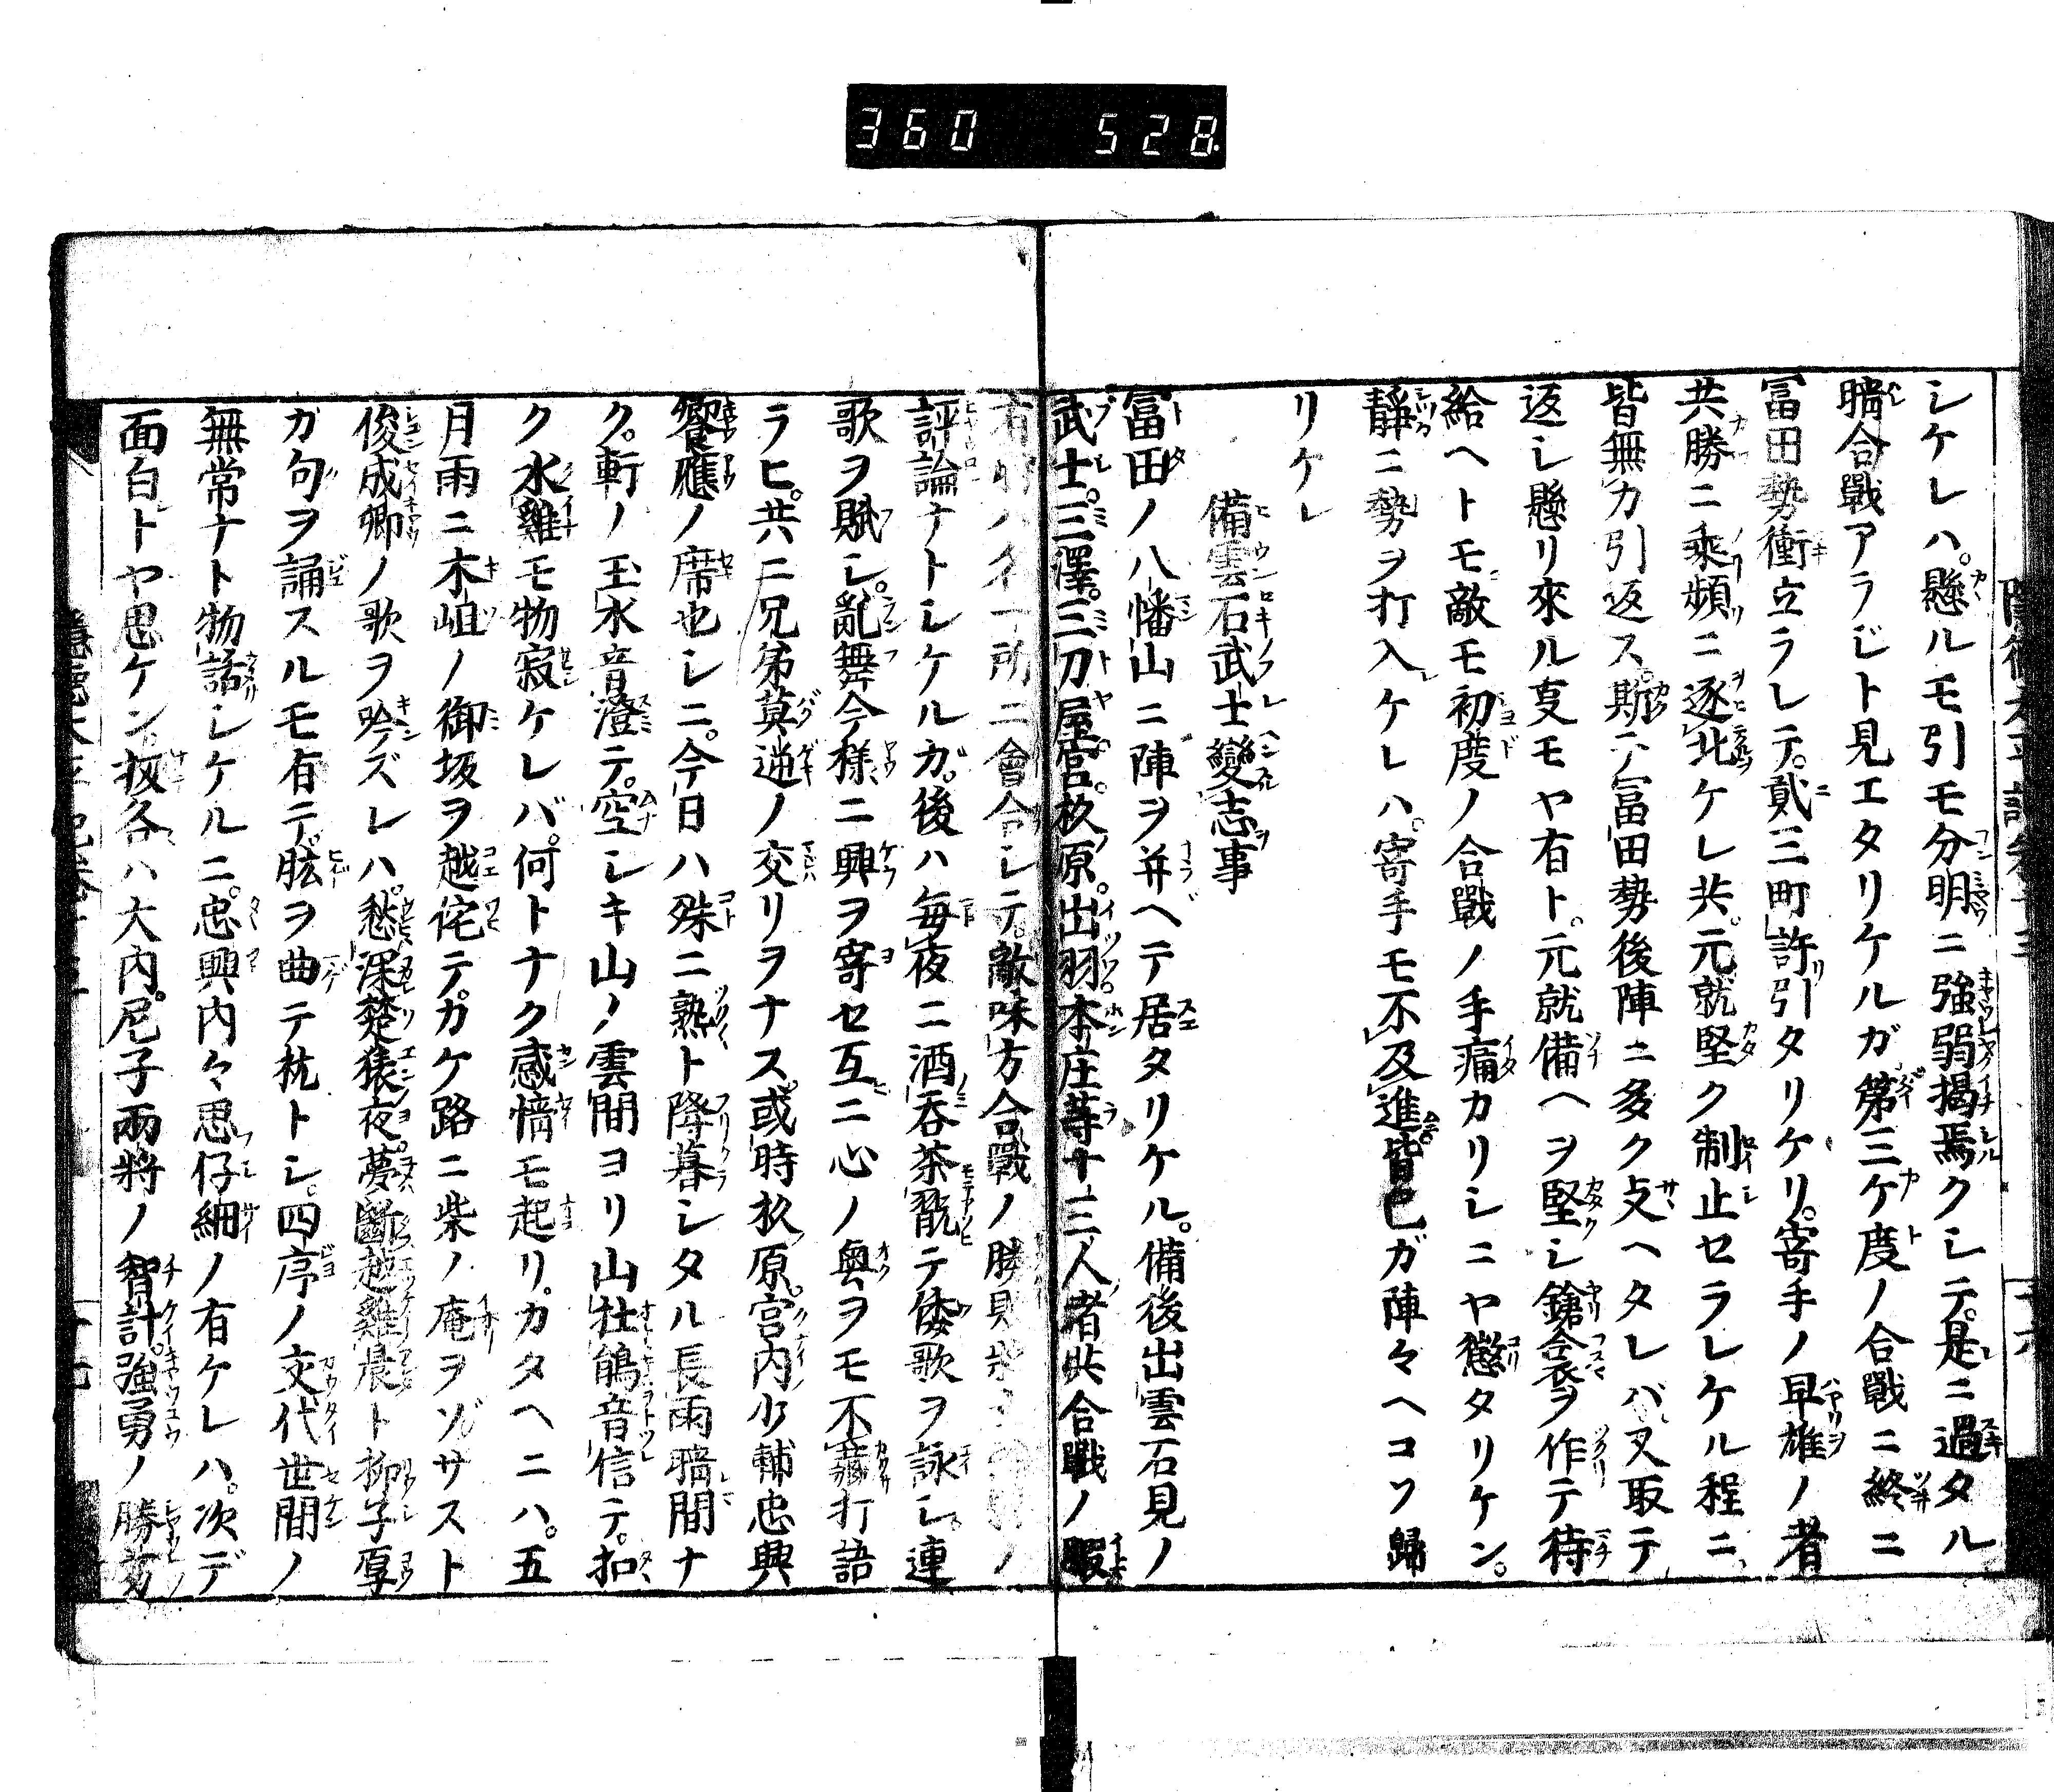 360 528
シケレハ。懸ルモ引モ分明ニ強弱掲焉クシテ。是ニ過タル
晴合戰アラジト見エタリケルガ第三ケ度ノ合戰ニ終ニ
冨田勢衝立ラレテ。貳三町許引タリケリ。寄手ノ早雄ノ者
共勝ニ乘頻ニ逐北ケレ共。元就堅ク制止セラレケル程ニ
皆無力引返ス。斯テ冨田勢後陣ニ多ク支ヘタレバ又取テ
返シ懸リ來ル支モヤ有ト。元就備ヘヲ堅シ鎗衾ヲ作テ待
給ヘトモ敵モ初度ノ合戰ノ手痛カリシニヤ懲タリケン。
靜ニ勢ヲ打入ケレハ。寄手モ不及進皆己ガ陣々ヘコソ歸
リケレ
備雲石武士變志事
冨田ノ八幡山ニ陣ヲ並ベテ居タリケル。備後出雲石見ノ
武士。三澤。三刀屋。宮。杉原。出羽。本庄等十三人ノ者共合戰ノ暇
ハ一所ニ會合シテ敵味方合戰ノ勝負
評論ナトシケルガ。後ハ毎夜ニ酒呑茶翫テ倭歌ヲ詠シ連
歌ヲ賦シ。亂舞今樣ニ興ヲ寄セ互ニ心ノ奥ヲモ不藏打語
ラヒ。共ニ兄弟莫逆ノ交リヲナス。或時杉原。宮内少輔忠興
饗應ノ席也シニ。今日ハ殊ニ熟ト降暮シタル長雨晴間ナ
ク。軒ノ玉水音澄テ。空シキ山ノ雲間ヨリ山杜鵑音信テ。扣
ク水雞モ物寂ケレバ。何トナク感情モ起リ。カタヘニハ。五
月雨ニ木岨ノ御坂ヲ越侘テカケ路ニ柴ノ庵ヲゾサスト
俊成卿ノ歌ヲ吟ズレハ。愁深楚猿夜。夢斷越雞晨ト柳子厚
ガ句ヲ誦スルモ有ニテ。肱ヲ曲テ枕トシ。四序ノ交代世間ノ
無常ナト物語シケルニ。忠興内々思仔細ノ有ケレハ。次デ
面白トヤ思ケン扨各ハ大内。尼子兩將ノ智計。強勇ノ勝